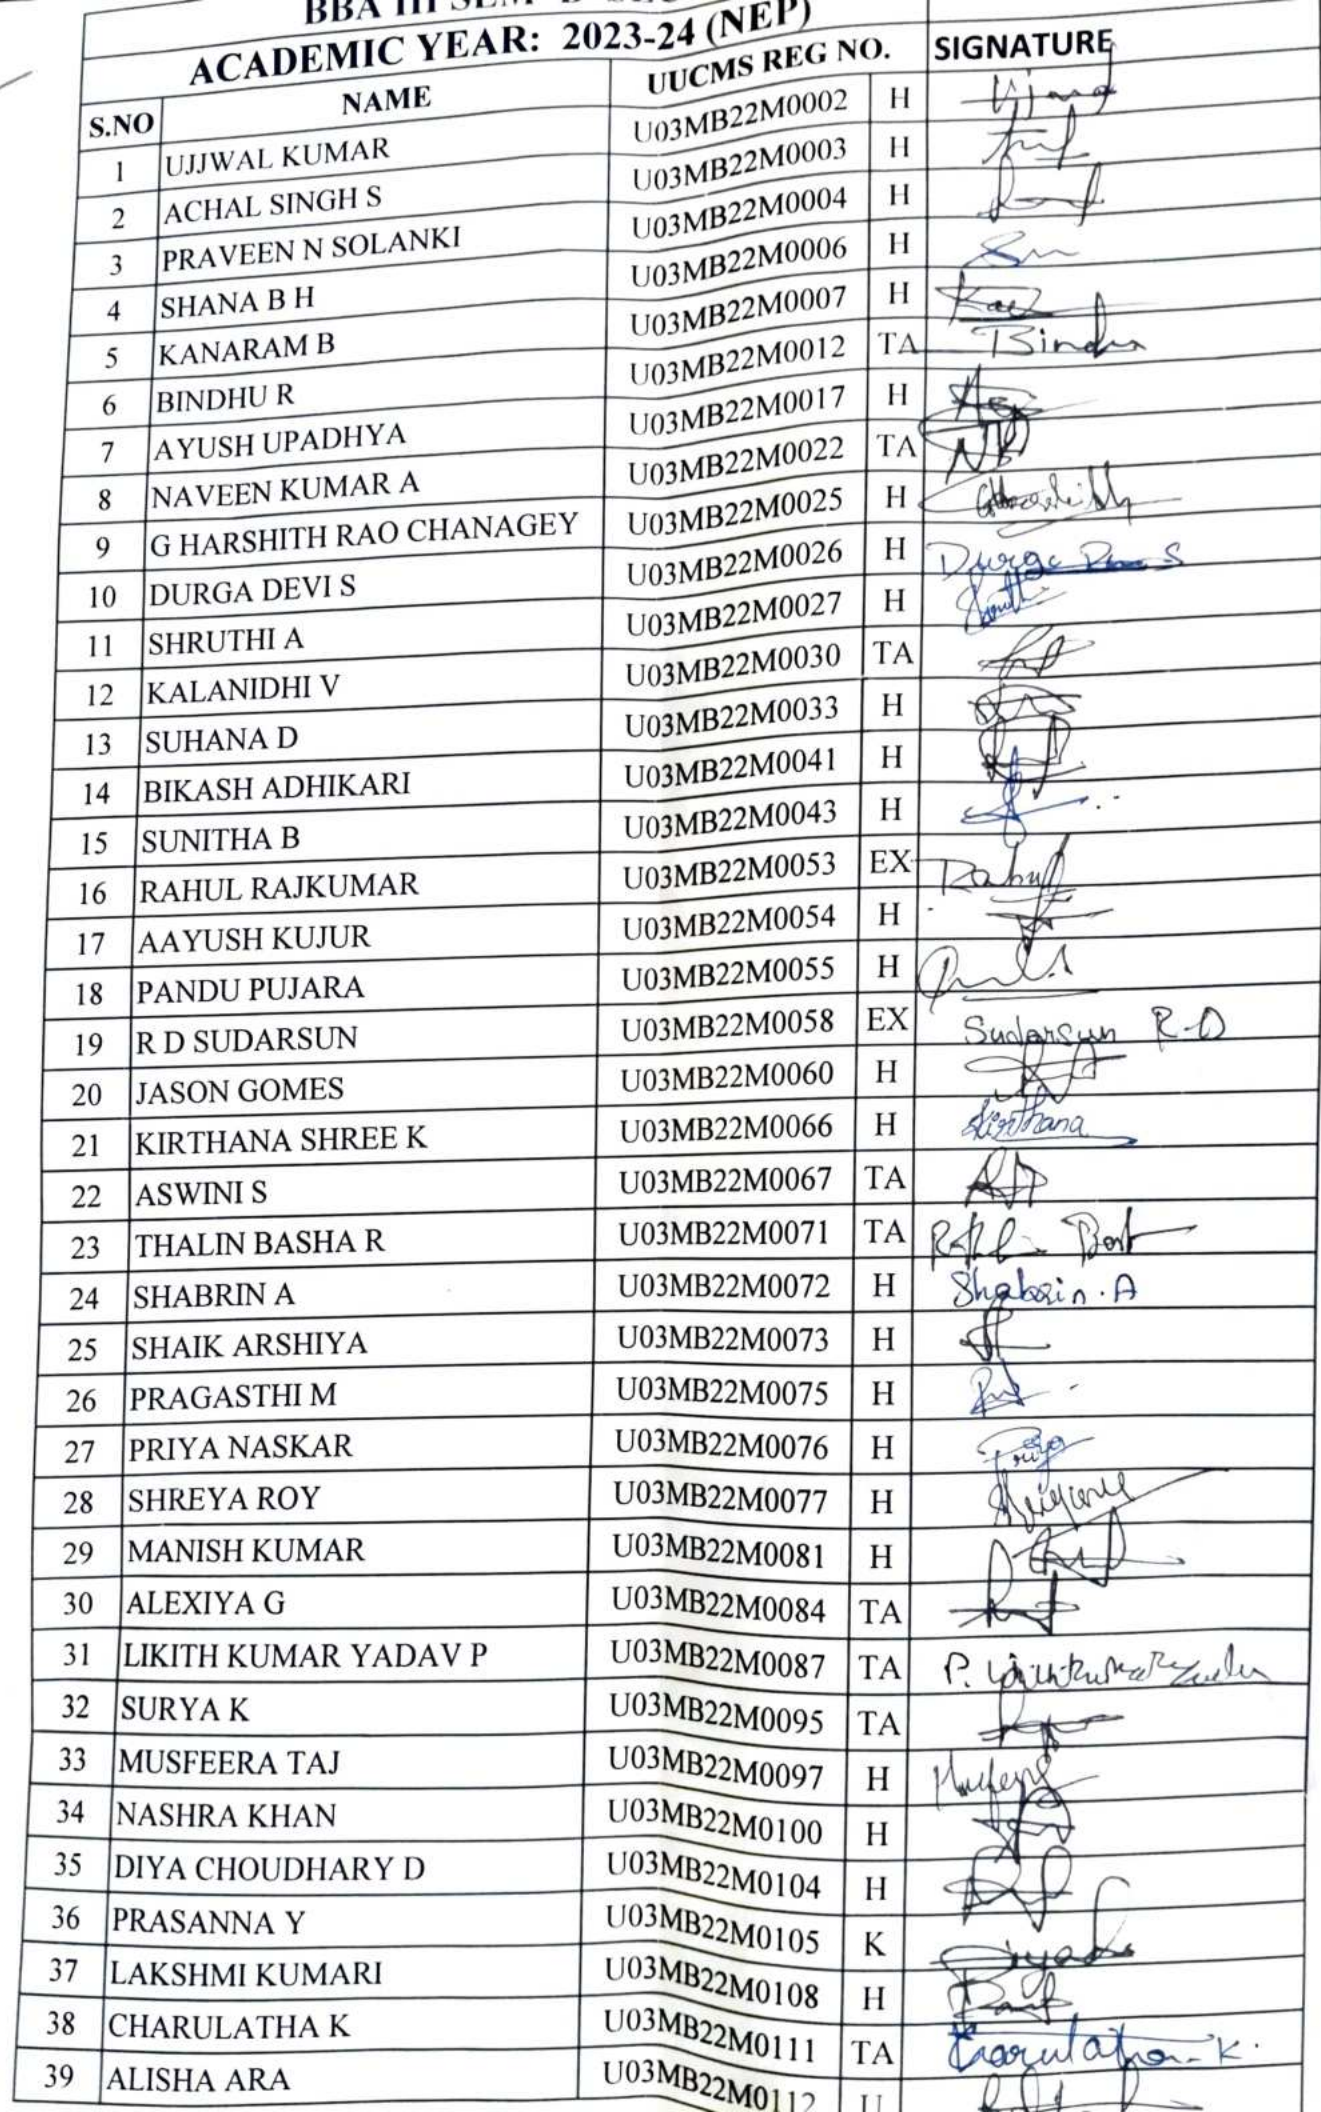 BBA III SEM
ACADEMIC YEAR: 2023-24 (NEP)
S.NO NAME UUCMS REG NO. SIGNATURE
1 UJJWAL KUMAR U03MB22M0002 H
2 ACHAL SINGH S U03MB22M0003 H
3 PRAVEEN N SOLANKI U03MB22M0004 H
4 SHANA B H U03MB22M0006 H
5 KANARAM B U03MB22M0007 H
6 BINDHU R U03MB22M0012 TA
7 AYUSH UPADHYA U03MB22M0017 H
8 NAVEEN KUMAR A U03MB22M0022 TA
9 G HARSHITH RAO CHANAGEY U03MB22M0025 H
10 DURGA DEVI S U03MB22M0026 H
11 SHRUTHI A U03MB22M0027 H
12 KALANIDHI V U03MB22M0030 TA
13 SUHANA D U03MB22M0033 H
14 BIKASH ADHIKARI U03MB22M0041 H
15 SUNITHA B U03MB22M0043 H
16 RAHUL RAJKUMAR U03MB22M0053 EX Rahul
17 AAYUSH KUJUR U03MB22M0054 H
18 PANDU PUJARA U03MB22M0055 H
19 R D SUDARSUN U03MB22M0058 EX Sudarsun R-D
20 JASON GOMES U03MB22M0060 H
21 KIRTHANA SHREE K U03MB22M0066 H Kirthana
22 ASWINI S U03MB22M0067 TA
23 THALIN BASHA R U03MB22M0071 TA
24 SHABRIN A U03MB22M0072 H Shabrin.A
25 SHAIK ARSHIYA U03MB22M0073 H
26 PRAGASTHI M U03MB22M0075 H
27 PRIYA NASKAR U03MB22M0076 H Priya
28 SHREYA ROY U03MB22M0077 H
29 MANISH KUMAR U03MB22M0081 H
30 ALEXIYA G U03MB22M0084 TA
31 LIKITH KUMAR YADAV P U03MB22M0087 TA
32 SURYA K U03MB22M0095 TA
33 MUSFEERA TAJ U03MB22M0097 H
34 NASHRA KHAN U03MB22M0100 H
35 DIYA CHOUDHARY D U03MB22M0104 H
36 PRASANNA Y U03MB22M0105 K
37 LAKSHMI KUMARI U03MB22M0108 H
38 CHARULATHA K U03MB22M0111 TA Charulatha.K.
39 ALISHA ARA U03MB22M0112